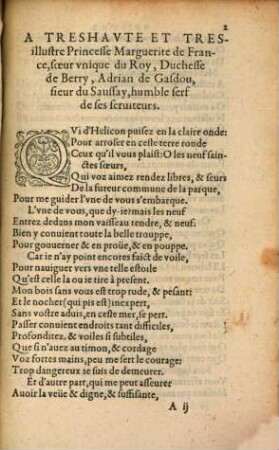 2
A TRESHAVTE ET TRES-
illustre Princesse Marguerite de Fran-
ce,sœur vnique du Roy, Duchesse
de Berry, Adrian de Gasdou,
sieur du Saussay, humble serf
de ses seruiteurs.
QVi d'Helicon puisez en la claire onde:
Pour arroser en ceste terre ronde
Ceux qu'il vous plaist: O les neuf sain-
ctes sœurs,
Qui voz aimez rendez libres, & seurs
De la fureur commune de la parque,
Pour me guider l'vne de vous s'embarque.
L'vne de vous, que dy-ie? mais les neuf
Entrez dedans mon vaisseau tendre, & neuf:
Bien y conuient toute la belle trouppe,
Pour gouuerner & en proüe, & en pouppe.
Car ie n'ay point encores faict de voile,
Pour nauiguer vers vne telle estoile
Qu'est celle la ou ie tire à present.
Mon bois sans vous est trop rude, & pesant:
Et le nocher (qui pis est) inexpert,
Sans vostre aduis, en ceste mer, se pert.
Passer conuient endroits tant difficiles,
Profonditez, & voiles si subtiles,
Que si n'auez au timon, & cordage
Voz fortes mains, peu me sert le courage:
Trop dangereux ie suis de demeurer.
Et d'autre part, qui me peut asseurer
Auoir la veüe & digne, & suffisante,
A ij